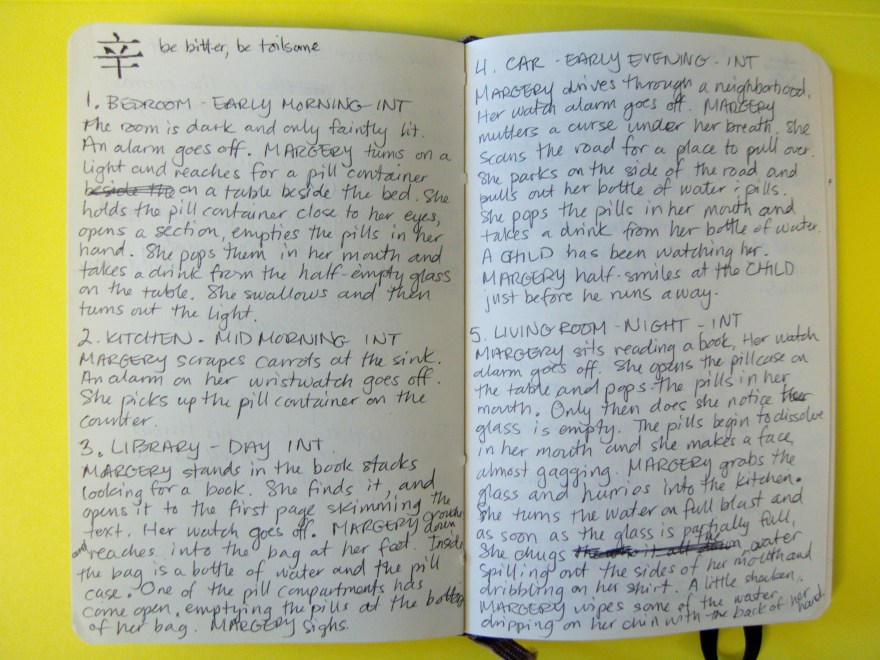 辛 be bitter, be toilsome
1. BEDROOM - EARLY MORNING - INT
The room is dark and only faintly lit.
An alarm goes off. MARGERY turns on a
light and reaches for a pill container
beside the on a table beside the bed. She
holds the pill container close to her eyes,
opens a section, empties the pills in her
hand. She pops them in her mouth and
takes a drink from the half-empty glass
on the table. She swallows and then
turns out the light.
2. KITCHEN - MID MORNING INT
MARGERY scrapes carrots at the sink.
An alarm on her wristwatch goes off.
She picks up the pill container on the
counter.
3. LIBRARY - DAY INT.
MARGERY stands in the book stacks
looking for a book. She finds it, and
opens it to the first page skimming the
text. Her watch goes off. MARGERY crouches down
and reaches into the bag at her feet. Inside
the bag is a bottle of water and the pill
case. One of the pill compartments has
come open, emptying the pills at the bottom
of her bag. MARGERY sighs.
4. CAR - EARLY EVENING - INT
MARGERY drives through a neighborhood.
Her watch alarm goes off. MARGERY
mutters a curse under her breath. She
scans the road for a place to pull over.
She parks on the side of the road and
pulls out her bottle of water & pills.
She pops the pills in her mouth and
takes a drink from her bottle of water.
A CHILD has been watching her.
MARGERY half-smiles at the CHILD
just before he runs away.
5. LIVING ROOM - NIGHT - INT
MARGERY sits reading a book. Her watch
alarm goes off. She opens the pillcase on
the table and pops the pills in her
mouth. Only then does she notice her
glass is empty. The pills begin to dissolve
in her mouth and she makes a face,
almost gagging. MARGERY grabs the
glass and hurries into the kitchen.
She turns the water on full blast and
as soon as the glass is partially full,
She chugs it, water
spilling out the sides of her mouth and
dribbling on her shirt. A little shaken,
MARGERY wipes some of the water
dripping on her chin with the back of her hand.